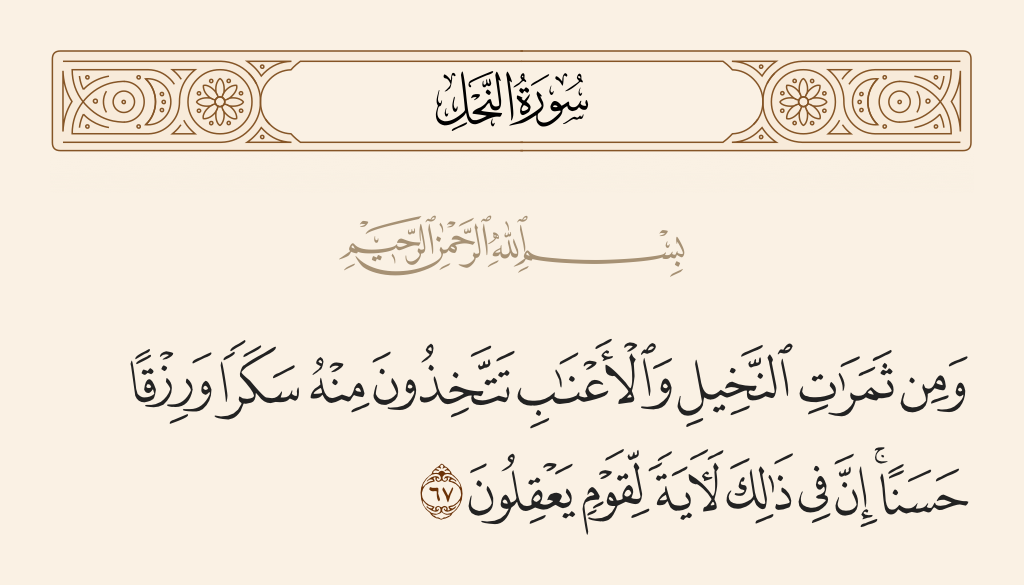 سُورَةُ النَّحْلِ
بِسْمِ ٱللَّهِ ٱلرَّحْمَٰنِ ٱلرَّحِيمِ
وَمِن ثَمَرَٰتِ ٱلنَّخِيلِ وَٱلْأَعْنَٰبِ تَتَّخِذُونَ مِنْهُ سَكَرًا وَرِزْقًا
حَسَنًا ۚ إِنَّ فِى ذَٰلِكَ لَـَٔايَةً لِّقَوْمٍ يَعْقِلُونَ ٦٧